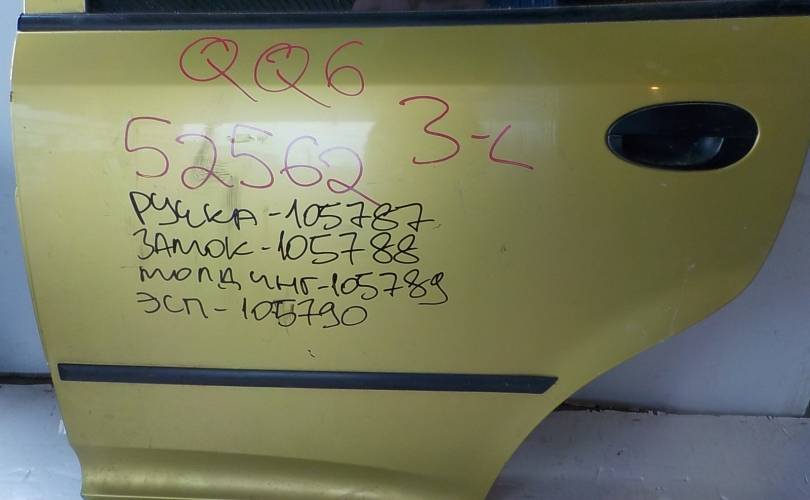 QQ6
52562 З-L
РУЧКА-105787
ЗАМОК-105788
МОЛДИНГ-105789
ЭСП-105790